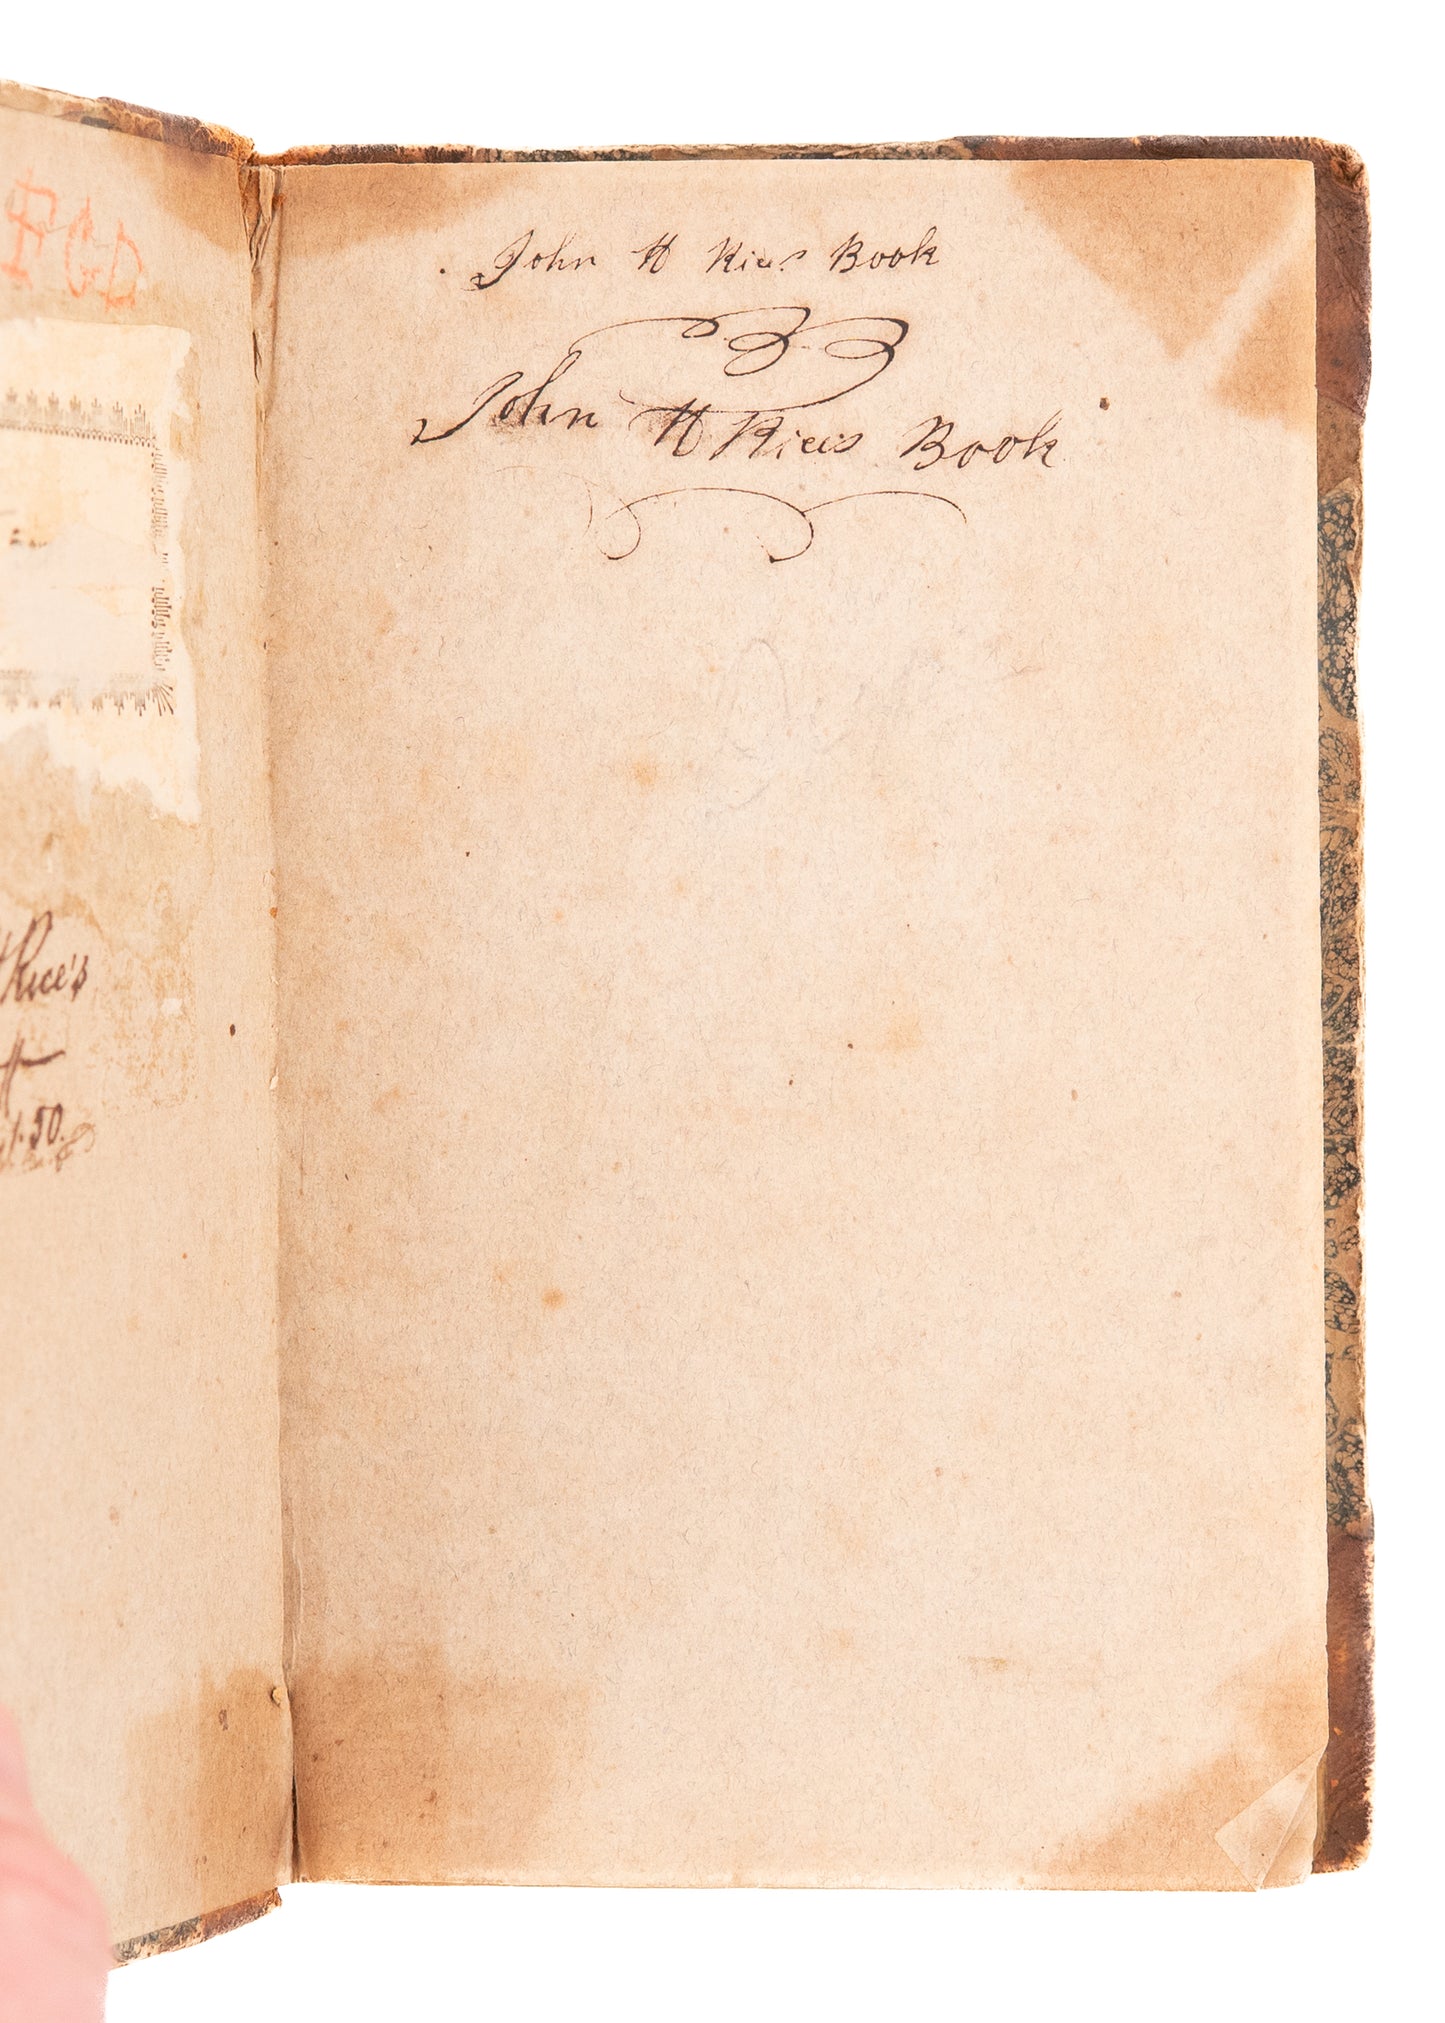 FGD
Rice's
50.
John H Rices Book
John H Rices Book